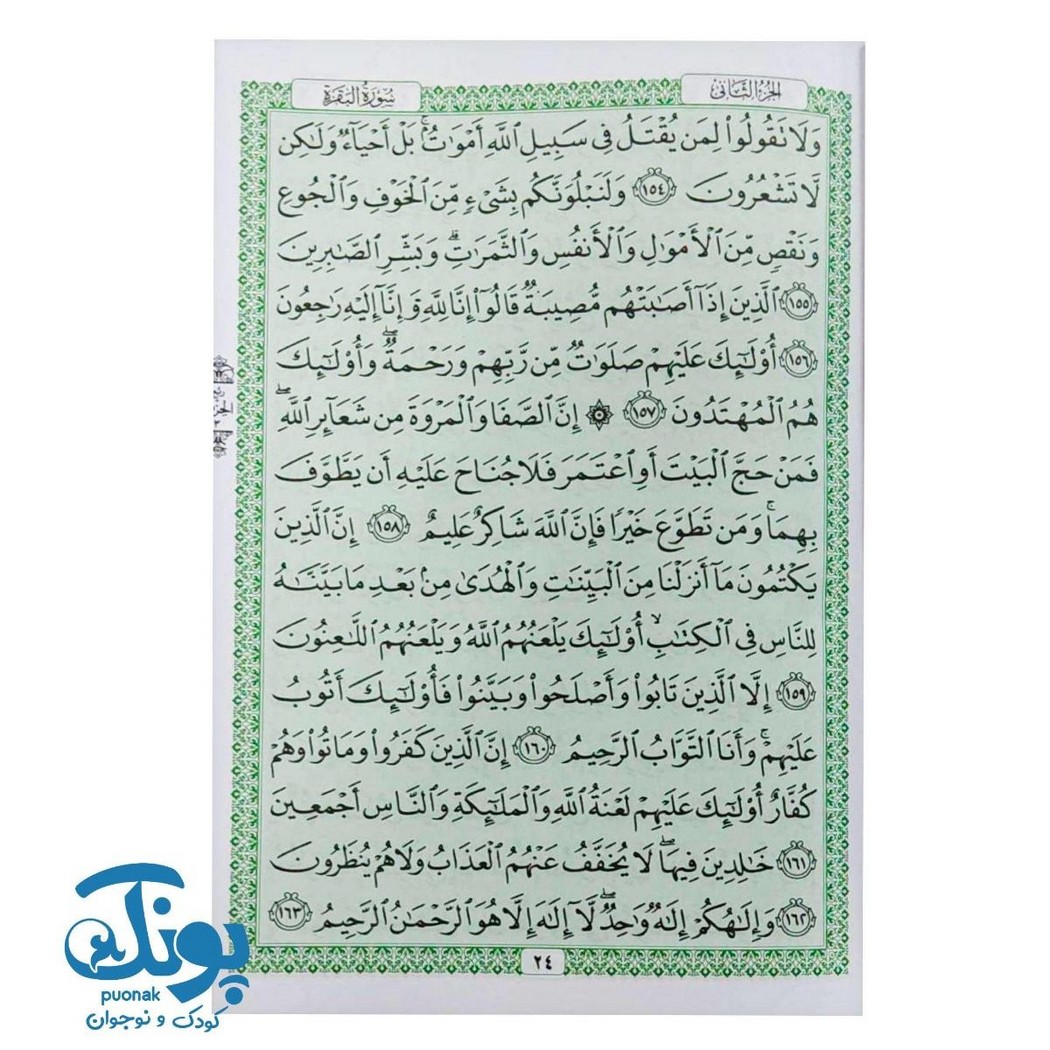 الجزء الثاني
سورة البقرة
وَلَا تَقُولُوا۟ لِمَن يُقْتَلُ فِى سَبِيلِ ٱللَّهِ أَمْوَٰتٌۢ ۚ بَلْ أَحْيَآءٌ وَلَٰكِن
لَّا تَشْعُرُونَ ﴿١٥٤﴾ وَلَنَبْلُوَنَّكُم بِشَىْءٍ مِّنَ ٱلْخَوْفِ وَٱلْجُوعِ
وَنَقْصٍ مِّنَ ٱلْأَمْوَٰلِ وَٱلْأَنفُسِ وَٱلثَّمَرَٰتِ ۗ وَبَشِّرِ ٱلصَّٰبِرِينَ
﴿١٥٥﴾ ٱلَّذِينَ إِذَآ أَصَٰبَتْهُم مُّصِيبَةٌ قَالُوٓا۟ إِنَّا لِلَّهِ وَإِنَّآ إِلَيْهِ رَٰجِعُونَ
﴿١٥٦﴾ أُو۟لَٰٓئِكَ عَلَيْهِمْ صَلَوَٰتٌ مِّن رَّبِّهِمْ وَرَحْمَةٌ ۖ وَأُو۟لَٰٓئِكَ
هُمُ ٱلْمُهْتَدُونَ ﴿١٥٧﴾ ۞ إِنَّ ٱلصَّفَا وَٱلْمَرْوَةَ مِن شَعَآئِرِ ٱللَّهِ ۖ
فَمَنْ حَجَّ ٱلْبَيْتَ أَوِ ٱعْتَمَرَ فَلَا جُنَاحَ عَلَيْهِ أَن يَطَّوَّفَ
بِهِمَا ۚ وَمَن تَطَوَّعَ خَيْرًا فَإِنَّ ٱللَّهَ شَاكِرٌ عَلِيمٌ ﴿١٥٨﴾ إِنَّ ٱلَّذِينَ
يَكْتُمُونَ مَآ أَنزَلْنَا مِنَ ٱلْبَيِّنَٰتِ وَٱلْهُدَىٰ مِنۢ بَعْدِ مَا بَيَّنَّٰهُ
لِلنَّاسِ فِى ٱلْكِتَٰبِ ۙ أُو۟لَٰٓئِكَ يَلْعَنُهُمُ ٱللَّهُ وَيَلْعَنُهُمُ ٱللَّٰعِنُونَ
﴿١٥٩﴾ إِلَّا ٱلَّذِينَ تَابُوا۟ وَأَصْلَحُوا۟ وَبَيَّنُوا۟ فَأُو۟لَٰٓئِكَ أَتُوبُ
عَلَيْهِمْ ۚ وَأَنَا ٱلتَّوَّابُ ٱلرَّحِيمُ ﴿١٦٠﴾ إِنَّ ٱلَّذِينَ كَفَرُوا۟ وَمَاتُوا۟ وَهُمْ
كُفَّارٌ أُو۟لَٰٓئِكَ عَلَيْهِمْ لَعْنَةُ ٱللَّهِ وَٱلْمَلَٰٓئِكَةِ وَٱلنَّاسِ أَجْمَعِينَ
﴿١٦١﴾ خَٰلِدِينَ فِيهَا ۖ لَا يُخَفَّفُ عَنْهُمُ ٱلْعَذَابُ وَلَا هُمْ يُنظَرُونَ
﴿١٦٢﴾ وَإِلَٰهُكُمْ إِلَٰهٌ وَٰحِدٌ ۖ لَّآ إِلَٰهَ إِلَّا هُوَ ٱلرَّحْمَٰنُ ٱلرَّحِيمُ ﴿١٦٣﴾
٢٤
پونک
puonak
کودک و نوجوان